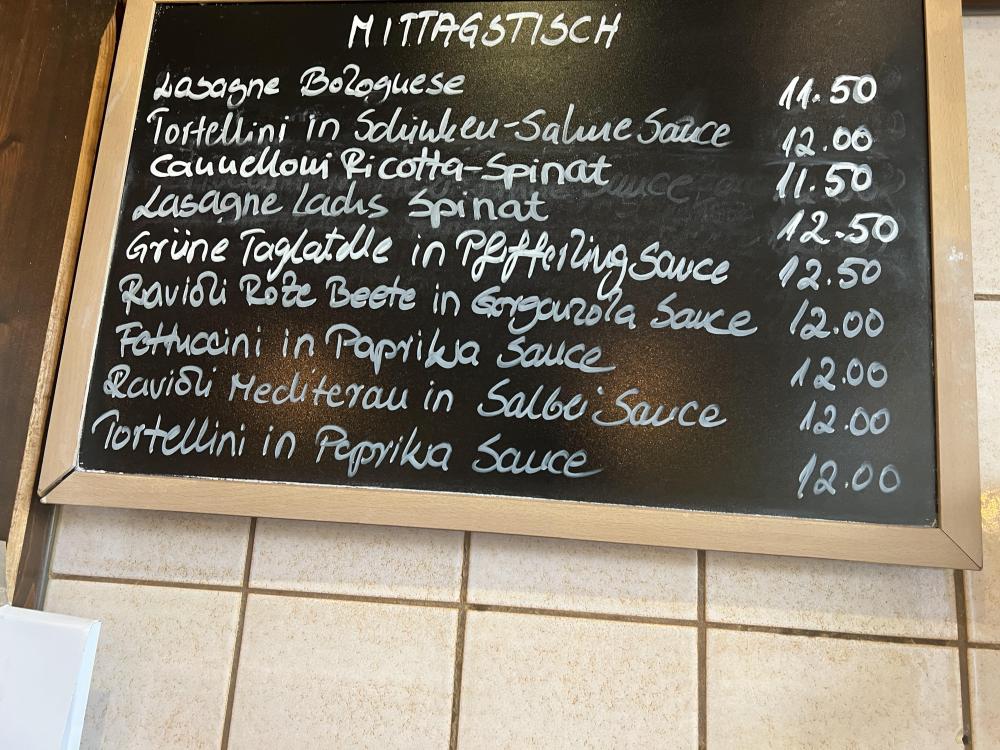 MITTAGSTISCH
Lasagne Bolognese 11.50
Tortellini in Schinken-Sahne Sauce 12.00
Cannelloni Ricotta-Spinat 11.50
Lasagne Lachs Spinat 12.50
Grüne Taglatelle in Pfifferling Sauce 12.50
Ravioli Rote Beete in Gorganzola Sauce 12.00
Fettuccini in Paprika Sauce 12.00
Ravioli Mediteran in Salbei Sauce 12.00
Tortellini in Paprika Sauce 12.00